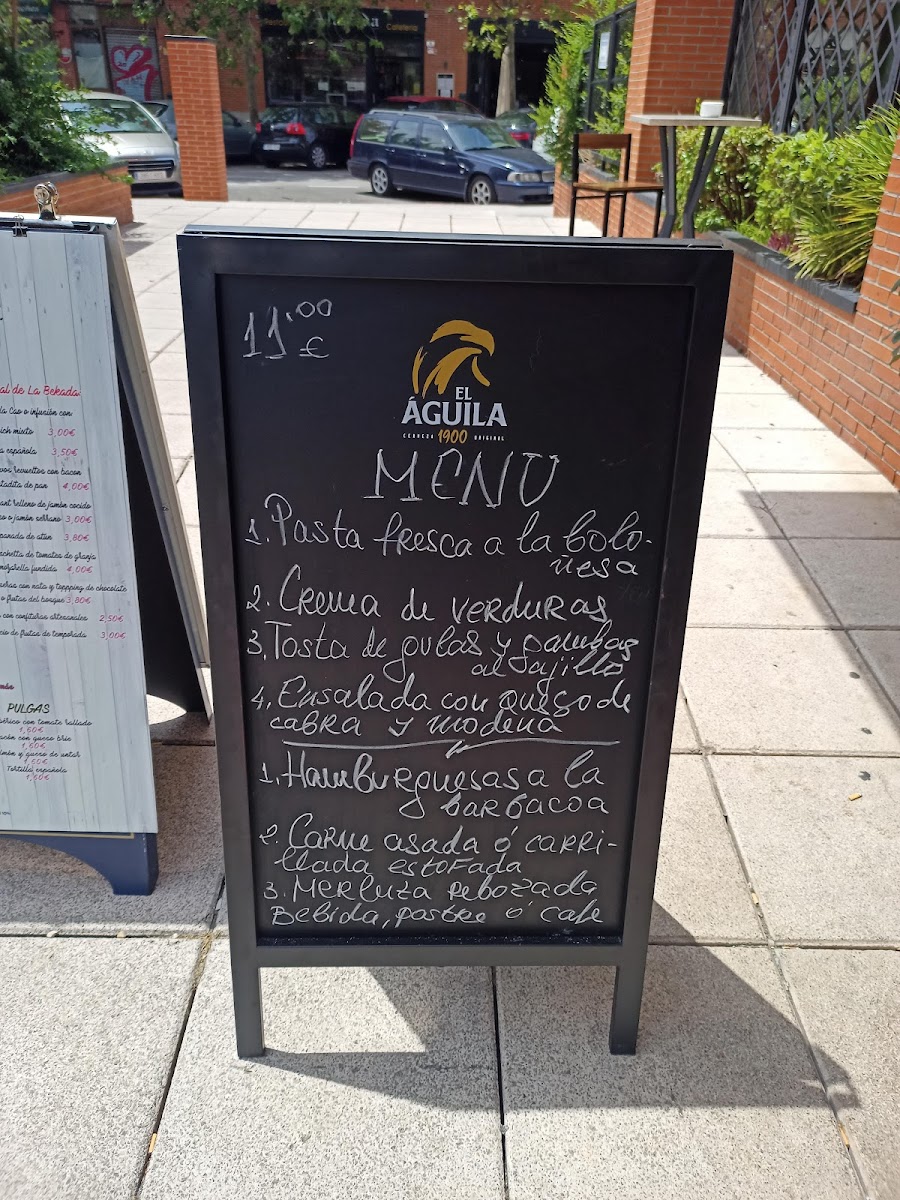 al de La Bekada
la Cao o infusión con
ich mixto 3,00€
a española 3,50€
vos revueltos con bacon
tadita de pan 4,00€
ant relleno de jamón cocido
so o jamón serrano 3,00€
panada de atún 3,80€
uschetta de tomates de granja
mozzarella fundida 4,00€
eras con nata y toppping de chocolate
o frutas del bosque 3,80€
con confituras artesanales 2,50€
cio de frutas de temporada 3,00€
PULGAS
bérico con tomate rallado
1,60€
acón con queso brie
1,60€
lmón y queso de untar
1,60€
Tortilla española
1,50€
11'00
€
EL
ÁGUILA
CERVEZA 1900 ORIGINAL
MENU
1. Pasta fresca a la bolo-
ñesa
2. Crema de verduras
3. Tosta de gulas y gambas
al ajillo
4. Ensalada con queso de
cabra y modena
1. Hamburguesas a la
barbacoa
2. Carne asada ó carri-
llada estofada
3. Merluza rebozada
Bebida, postre ó cafe